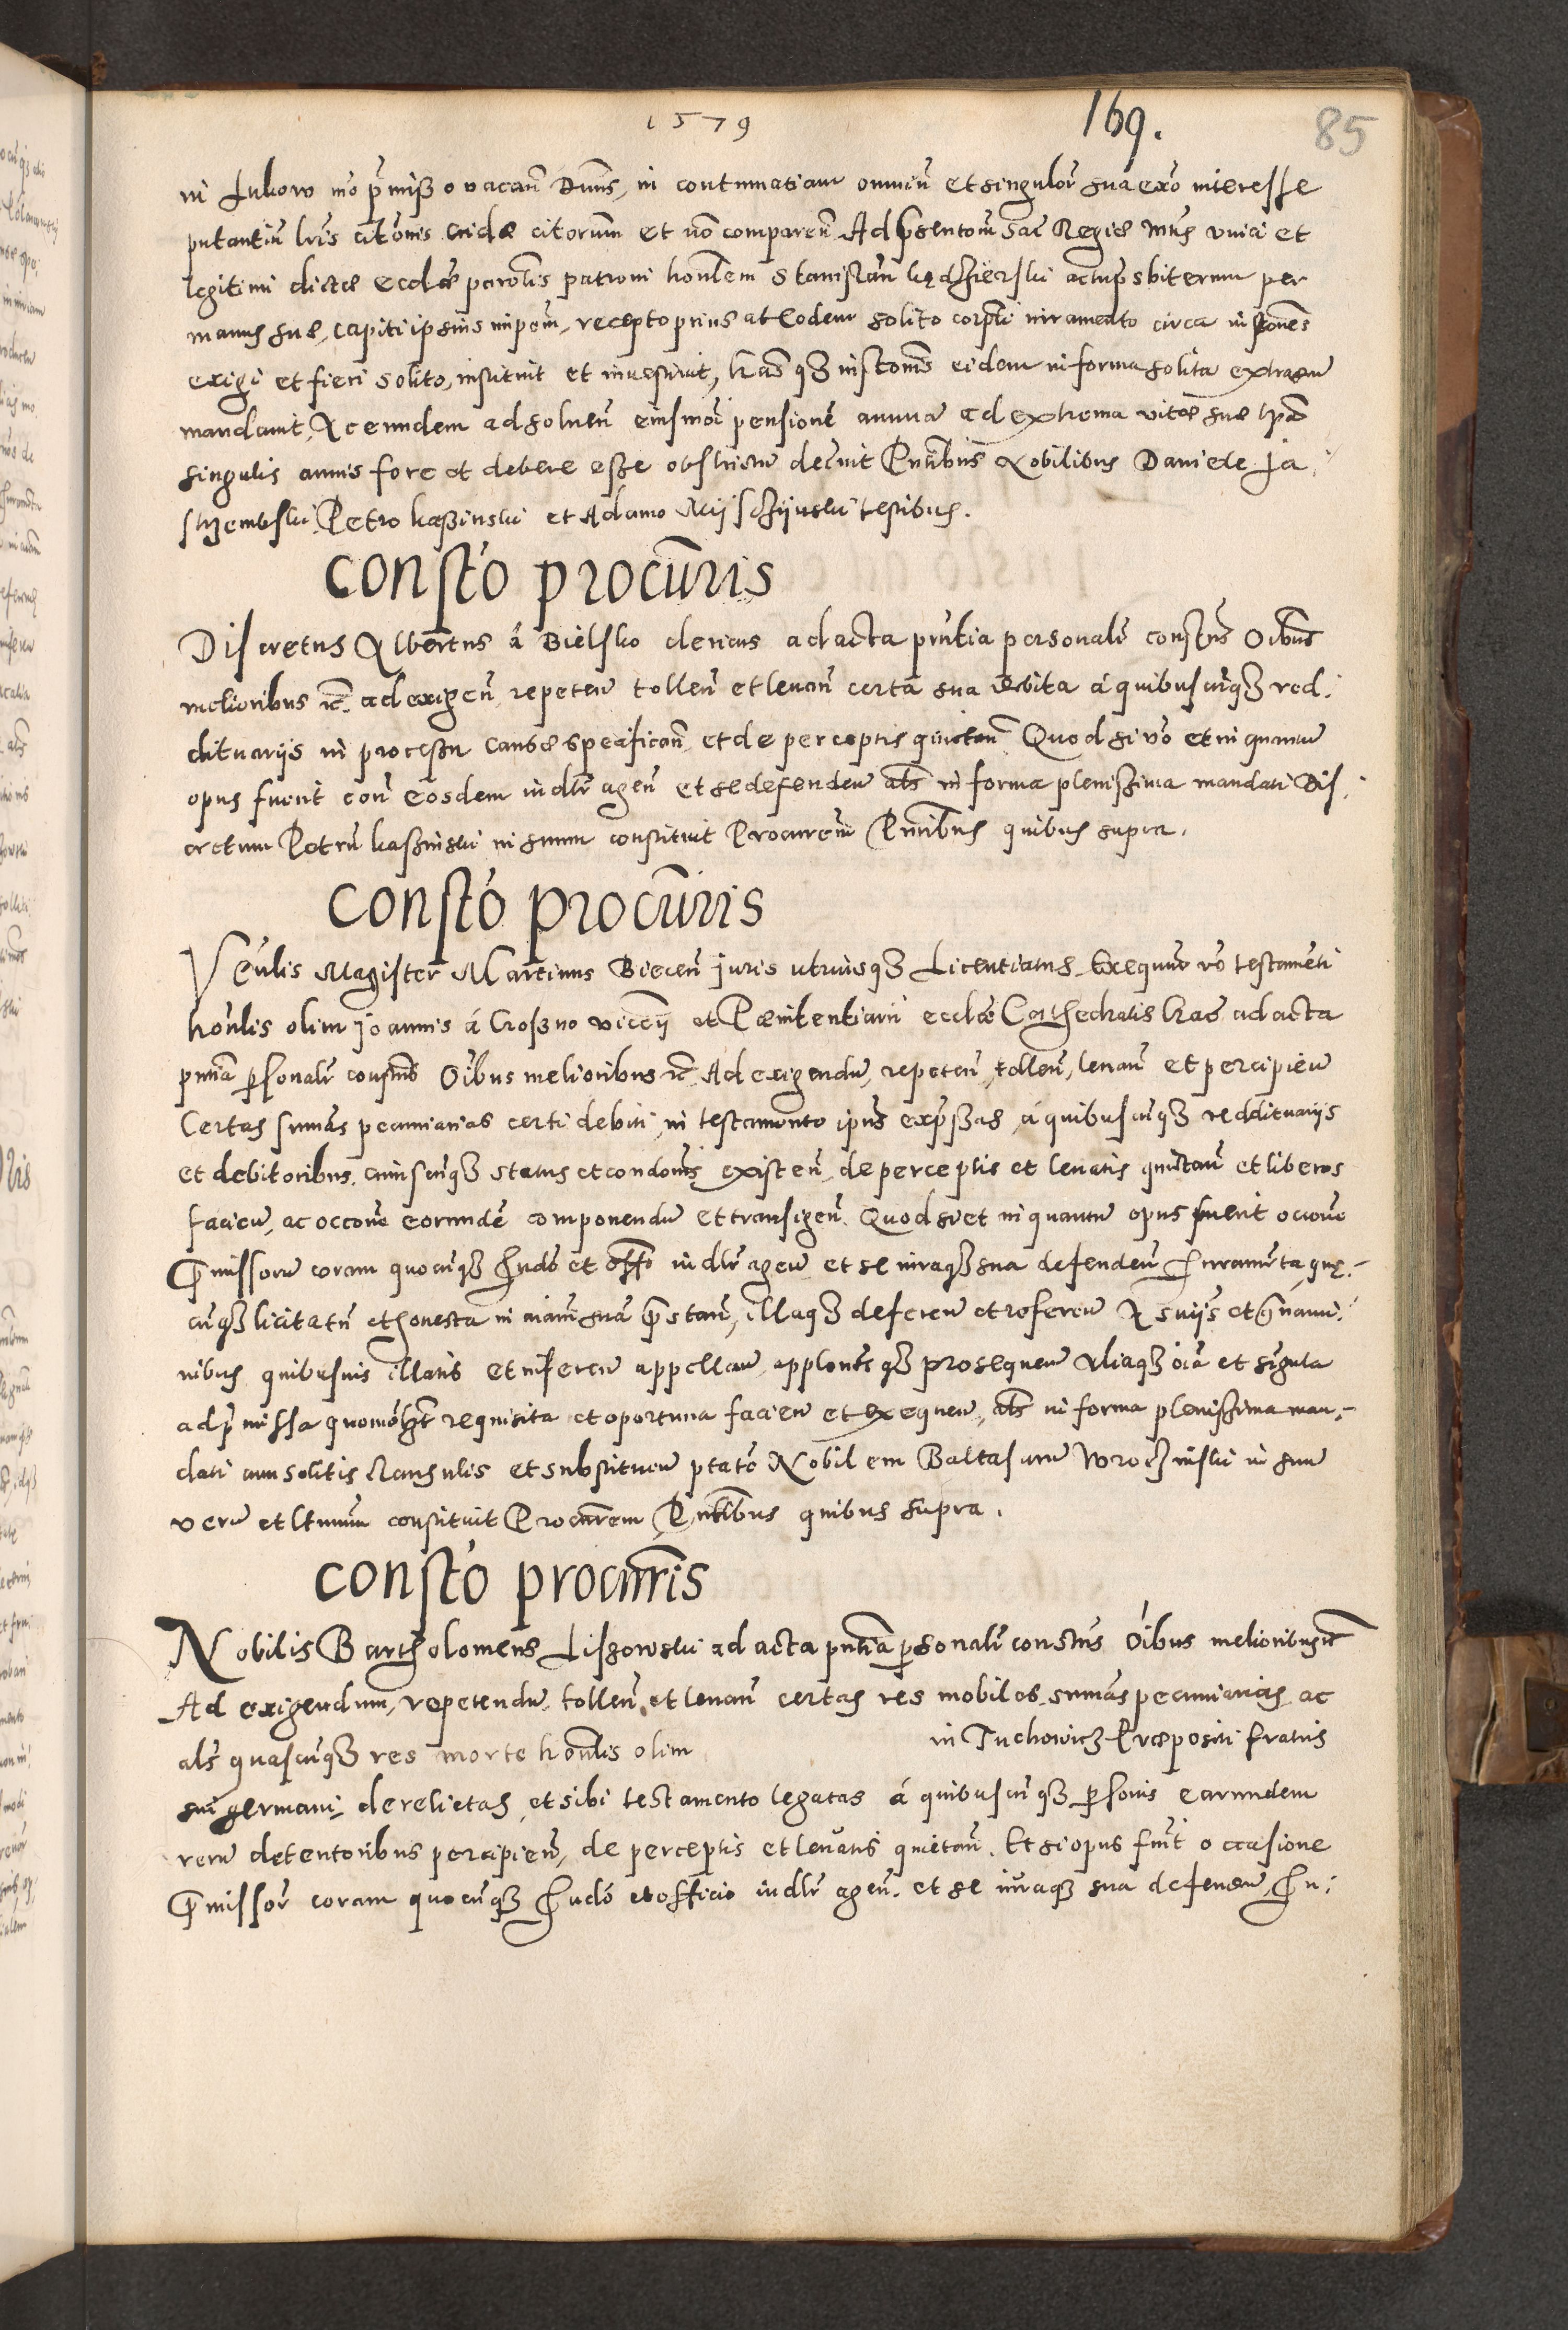 1579
169.
85
in Lukow mo p̃misso vacañ Dũns, in contumatiam omniũ et singulor̃ sua exõ interesse
putantiũ lr̃is citõnis eñdẽ citorum et nõ comparen̄ Ad p̃sentom̃ Sac Regiæ Mtĩs vnici et
legitimi dictæ ecclæ parolis patroni honlem Stanislaũ actu p̃sbiterum per
manus suæ capiti ipsius impom̃, recepto prius ab eodem solito corpli iuramento circa instiones
exigi et fieri solito, instituit et inuestiuit, lrãs qȝ instiom̃s eidem in forma solita extrahem
mandauit, Ac eundem ad soluen̄ eiusmoi pensionẽ annuã ad extrema vitæ suæ tp̃a
singulis annis fore et debere esse obstrictum decreuit Pñtibus Nobilibus Daniele Ja
strzembski Petro kaßinski et Adamo testibus.
Constõ procũris
Discretus Albertus à Bielsko clericus ad acta pñtia personalr̃ constũs Oĩbus
melioribus rc̃. ad exigen̄, repeten̄ tollen̄ et leuan̄ certa sua debita à quibuscũqȝ red.
dituarijs in processu causæ specifican̄ et de perceptis quietan̄ Quod si vo et in quantum
opus fuerit con̄ eosdem iudlr̃ agen̄ et se defenden̄ als in forma plenissima mandati Dis,
cretum Petrũ kaßinski in suum constituit Procurem̃ Pñtibus quibus supra.
Constõ procũris
Veñlis Magister Martinus Biecen̄ juris utriusqȝ Licentiatus Exequũr vo testamẽti
honlis olim joannis à Crosno viccij et Pœnitentiarii ecclæ Cathedralis Crac̃ ad acta
pñtia p̃sonalr̃ constũs Oĩbus melioribus rc̃ Ad exigendũ, repeten̄, tollen̄, leuan̄ et percipien̄
Certas sumãs pecuniarias certi debiti, in testamento ipius exp̃ssas, à quibuscũqȝ reddituarijs
et debitoribus cuiuscũqȝ status et condonis existen̄, de perceptis et leuatis quietan̄ et liberos
facien̄, ac occõne eorundẽ componendũ et transigen̄. Quod si et in quantum opus fuerit occõne
P̃missorũ coram quocũqȝ Judõ et offõ iudlr̃ agen̄ et se iuraqȝ sua defenden̄ Juramẽta, quæ,
cũqȝ licita tñ et honesta in aĩam suã p̃stan̄, illaqȝ deferen̄ et referen̄ A snijs et g̃nami.
nibus quibusuis illatis et inferen̄ appellan̄, appllonesqȝ prosequen̄ Aliaqȝ oĩa et singula
ad p̃missa quomõlȝt requisita et oportuna facien̄ et exequen̄, als in forma plenissima man,
dati cum solitis clausulis et substituen̄ ptatẽ Nobilem Baltasarum in suũ
verũ et ltmum constituit Procurem Pñtibus quibus supra.
Constõ procuris
Nobilis Bartholomeus Lißowski ad acta pñtia p̃sonalr̃ constũs Oĩbus melioribus rc̃
Ad exigendum, repetendũ tollen̄ et leuan̄ certas res mobiles, sumãs pecuniarias ac
als quascũqȝ res morte honlis olim in Tuchowicȝ Præpositi fratris
sui germani derelictas et sibi testamento legatas à quibuscũqȝ p̃sonis earundem
rerũ detentoribus percipien̄, de perceptis et leuatis quietan̄. Et si opus fuit occasione
P̃missor̃ coram quocũqȝ Judõ et officio iudlr̃ agen̄. et se iuraqȝ sua defenden̄ Ju,